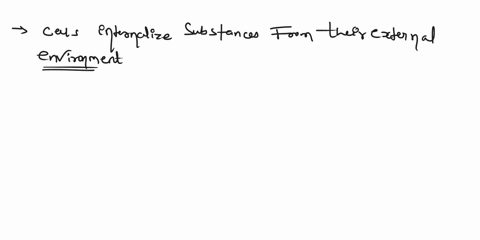 → Cells internalize Substances From their external
environment